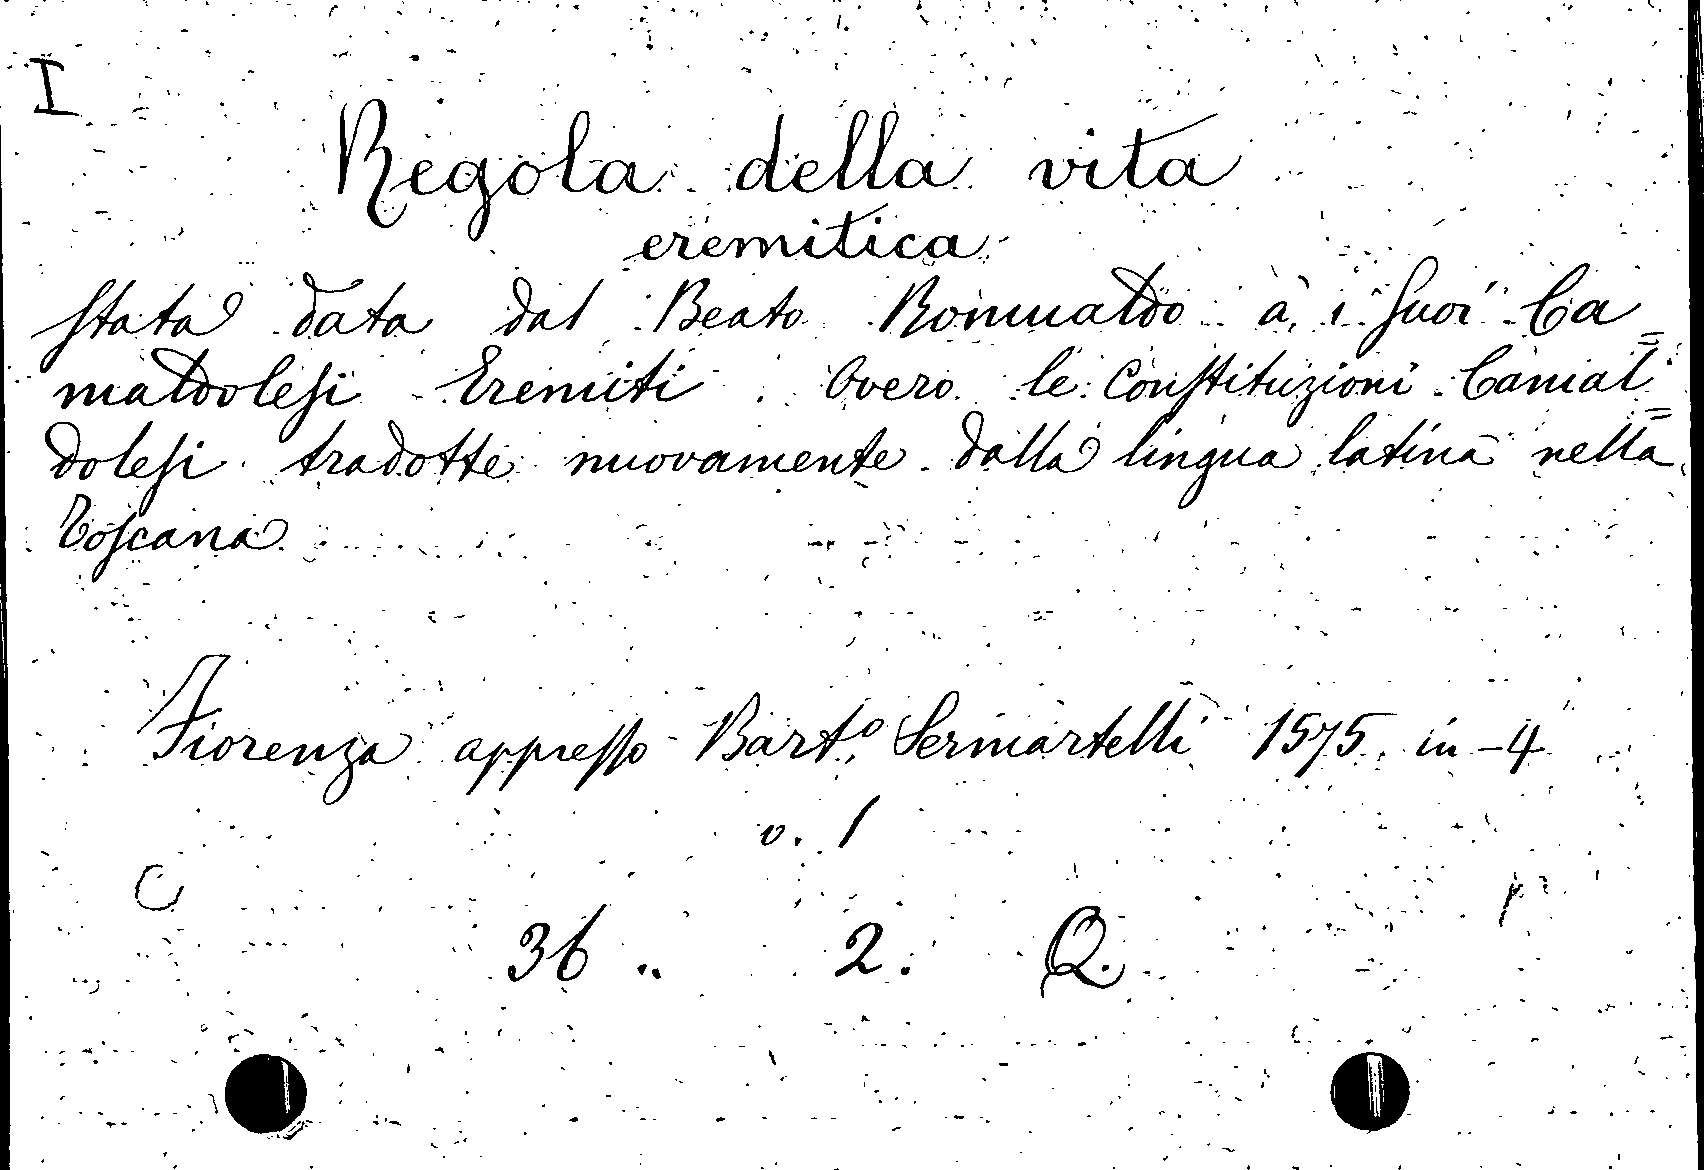 I
Regola della vita
eremitica
ſtata data dal Beato Romualdo à i ſuoi Ca=
maldoleſi Eremiti. Overo le Conſtituzioni Camal=
doleſi tradotte nuovamente dalla lingua latina nella
Toſcana
Fiorenza appreſſo Bart.º Sermartelli 1575. in-4
v. 1
C
36.. 2. Q.